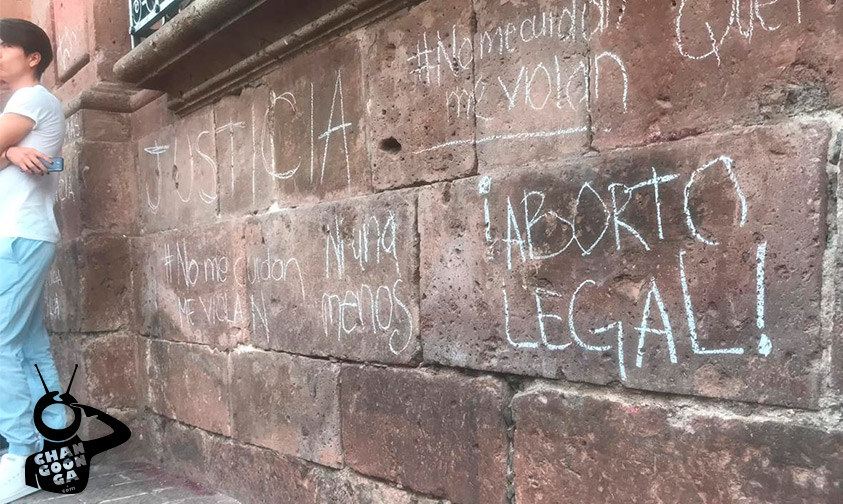 #No me cuidan
me violan
Que
JUSTICIA
#No me cuidan
ME VIOLAN
Ni una
menos
¡ABORTO
LEGAL!
CHAN
GOON
GA
.com